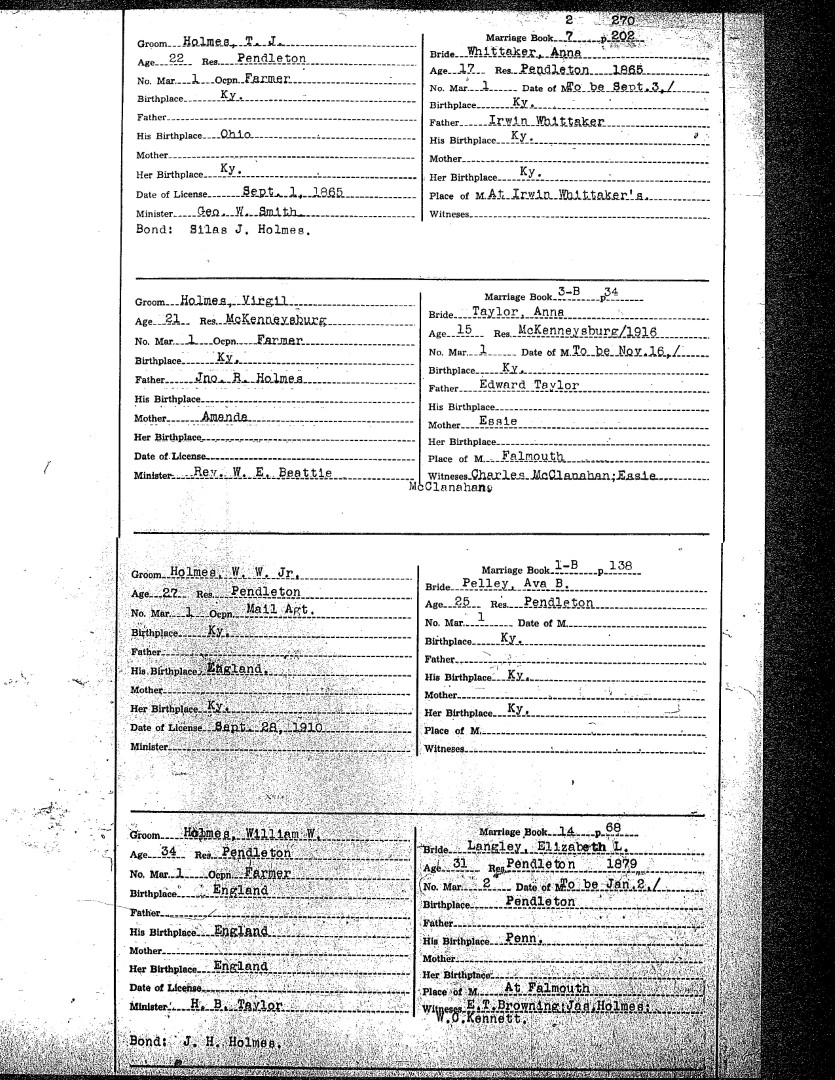 2 270
Groom Holmes, T. J.
Age 22 Res. Pendleton
No. Mar. 1 Ocpn. Farmer
Birthplace Ky.
Father
His Birthplace Ohio
Mother
Her Birthplace Ky.
Date of License Sept. 1, 1865
Minister Geo. W. Smith
Bond: Silas J. Holmes.
Marriage Book 7 p. 202
Bride Whittaker, Anna
Age 17 Res. Pendleton 1865
No. Mar. 1 Date of M. To be Sept.3,/
Birthplace Ky.
Father Irwin Whittaker
His Birthplace Ky.
Mother
Her Birthplace Ky.
Place of M. At Irwin Whittaker's.
Witneses
Groom Holmes, Virgil
Age 21 Res. McKenneysburg
No. Mar. 1 Ocpn. Farmer
Birthplace Ky.
Father Jno. R. Holmes
His Birthplace
Mother Amanda
Her Birthplace
Date of License
Minister Rev. W. E. Beattie
Marriage Book 3-B p. 34
Bride Taylor, Anna
Age 15 Res. McKenneysburg/1916
No. Mar. 1 Date of M. To be Nov.16,/
Birthplace Ky.
Father Edward Taylor
His Birthplace
Mother Essie
Her Birthplace
Place of M. Falmouth
Witneses Charles McClanahan;Essie
McClanahan.
Groom Holmes, W. W. Jr.
Age 27 Res. Pendleton
No. Mar. 1 Ocpn. Mail Agt.
Birthplace Ky.
Father
His Birthplace England.
Mother
Her Birthplace Ky.
Date of License Sept. 28, 1910
Minister
Marriage Book 1-B p. 138
Bride Pelley, Ava B.
Age 25 Res. Pendleton
No. Mar. 1 Date of M.
Birthplace Ky.
Father
His Birthplace Ky.
Mother
Her Birthplace Ky.
Place of M.
Witneses
Groom Holmes, William W.
Age 34 Res. Pendleton
No. Mar. 1 Ocpn. Farmer
Birthplace England
Father
His Birthplace England
Mother
Her Birthplace England
Date of License
Minister H. B. Taylor
Bond: J. H. Holmes.
Marriage Book 14 p. 68
Bride Langley, Elizabeth L.
Age 31 Res. Pendleton 1879
No. Mar. 2 Date of M. To be Jan.2,/
Birthplace Pendleton
Father
His Birthplace Penn.
Mother
Her Birthplace
Place of M. At Falmouth
Witneses E.T.Browning;Jas.Holmes;
W.O.Kennett.